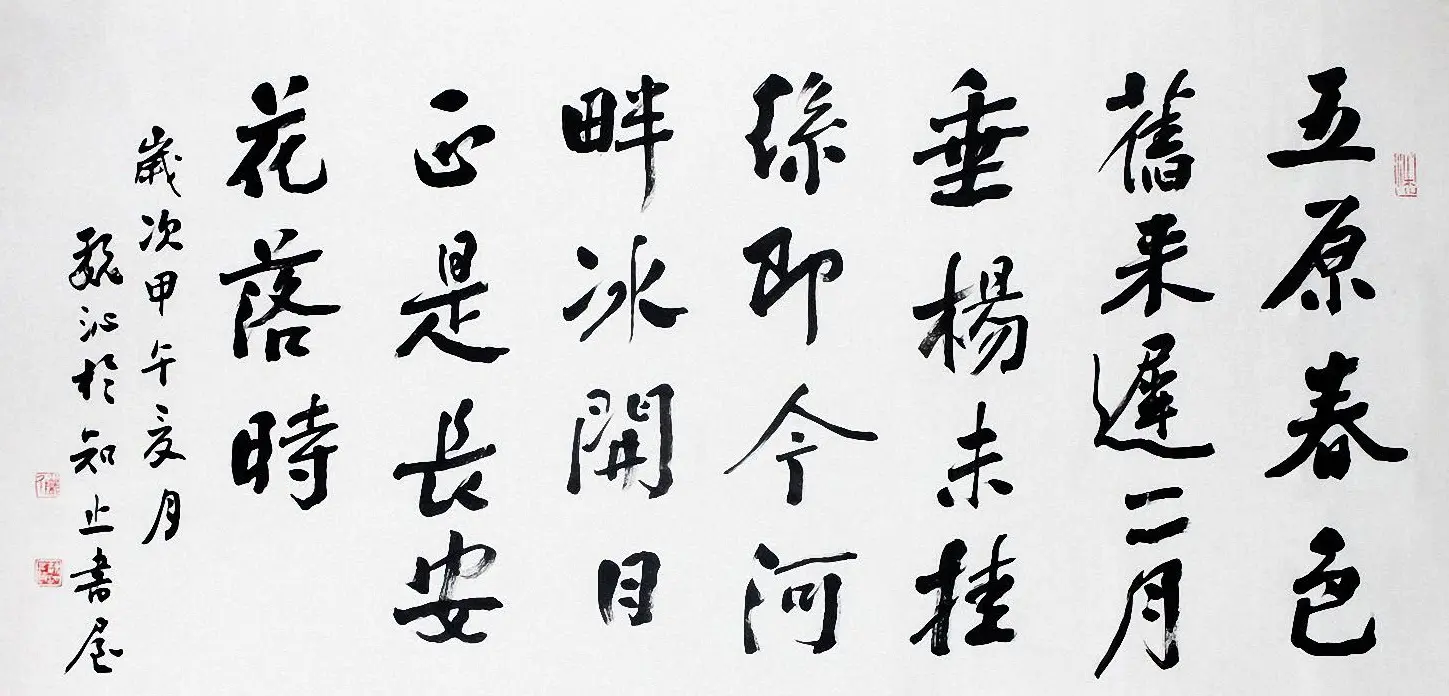 五原春色
舊来遲二月
垂楊未挂
絲即今河
畔冰開日
正是長安
花落時
歲次甲午夏月
魏沁於知止書屋